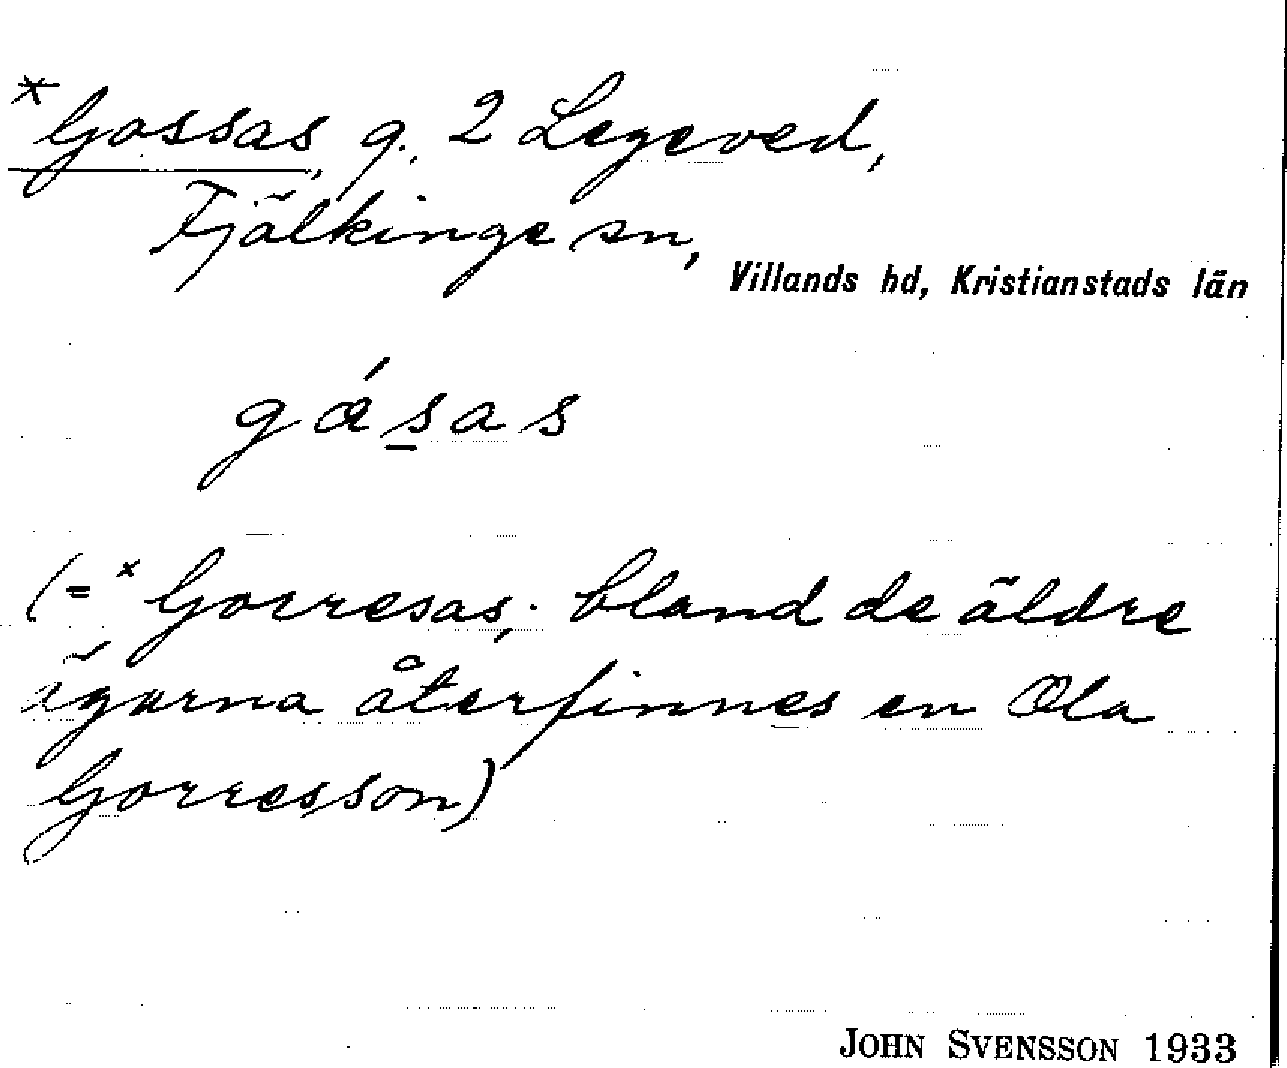 *Gossas, g. 2 Legeved,
Fjälkinge sn,
Villands hd, Kristianstads län
gǻsas
(= *Gorresas; bland de äldre
ägarna återfinnes en Ola
Gorresson)
JOHN SVENSSON 1933